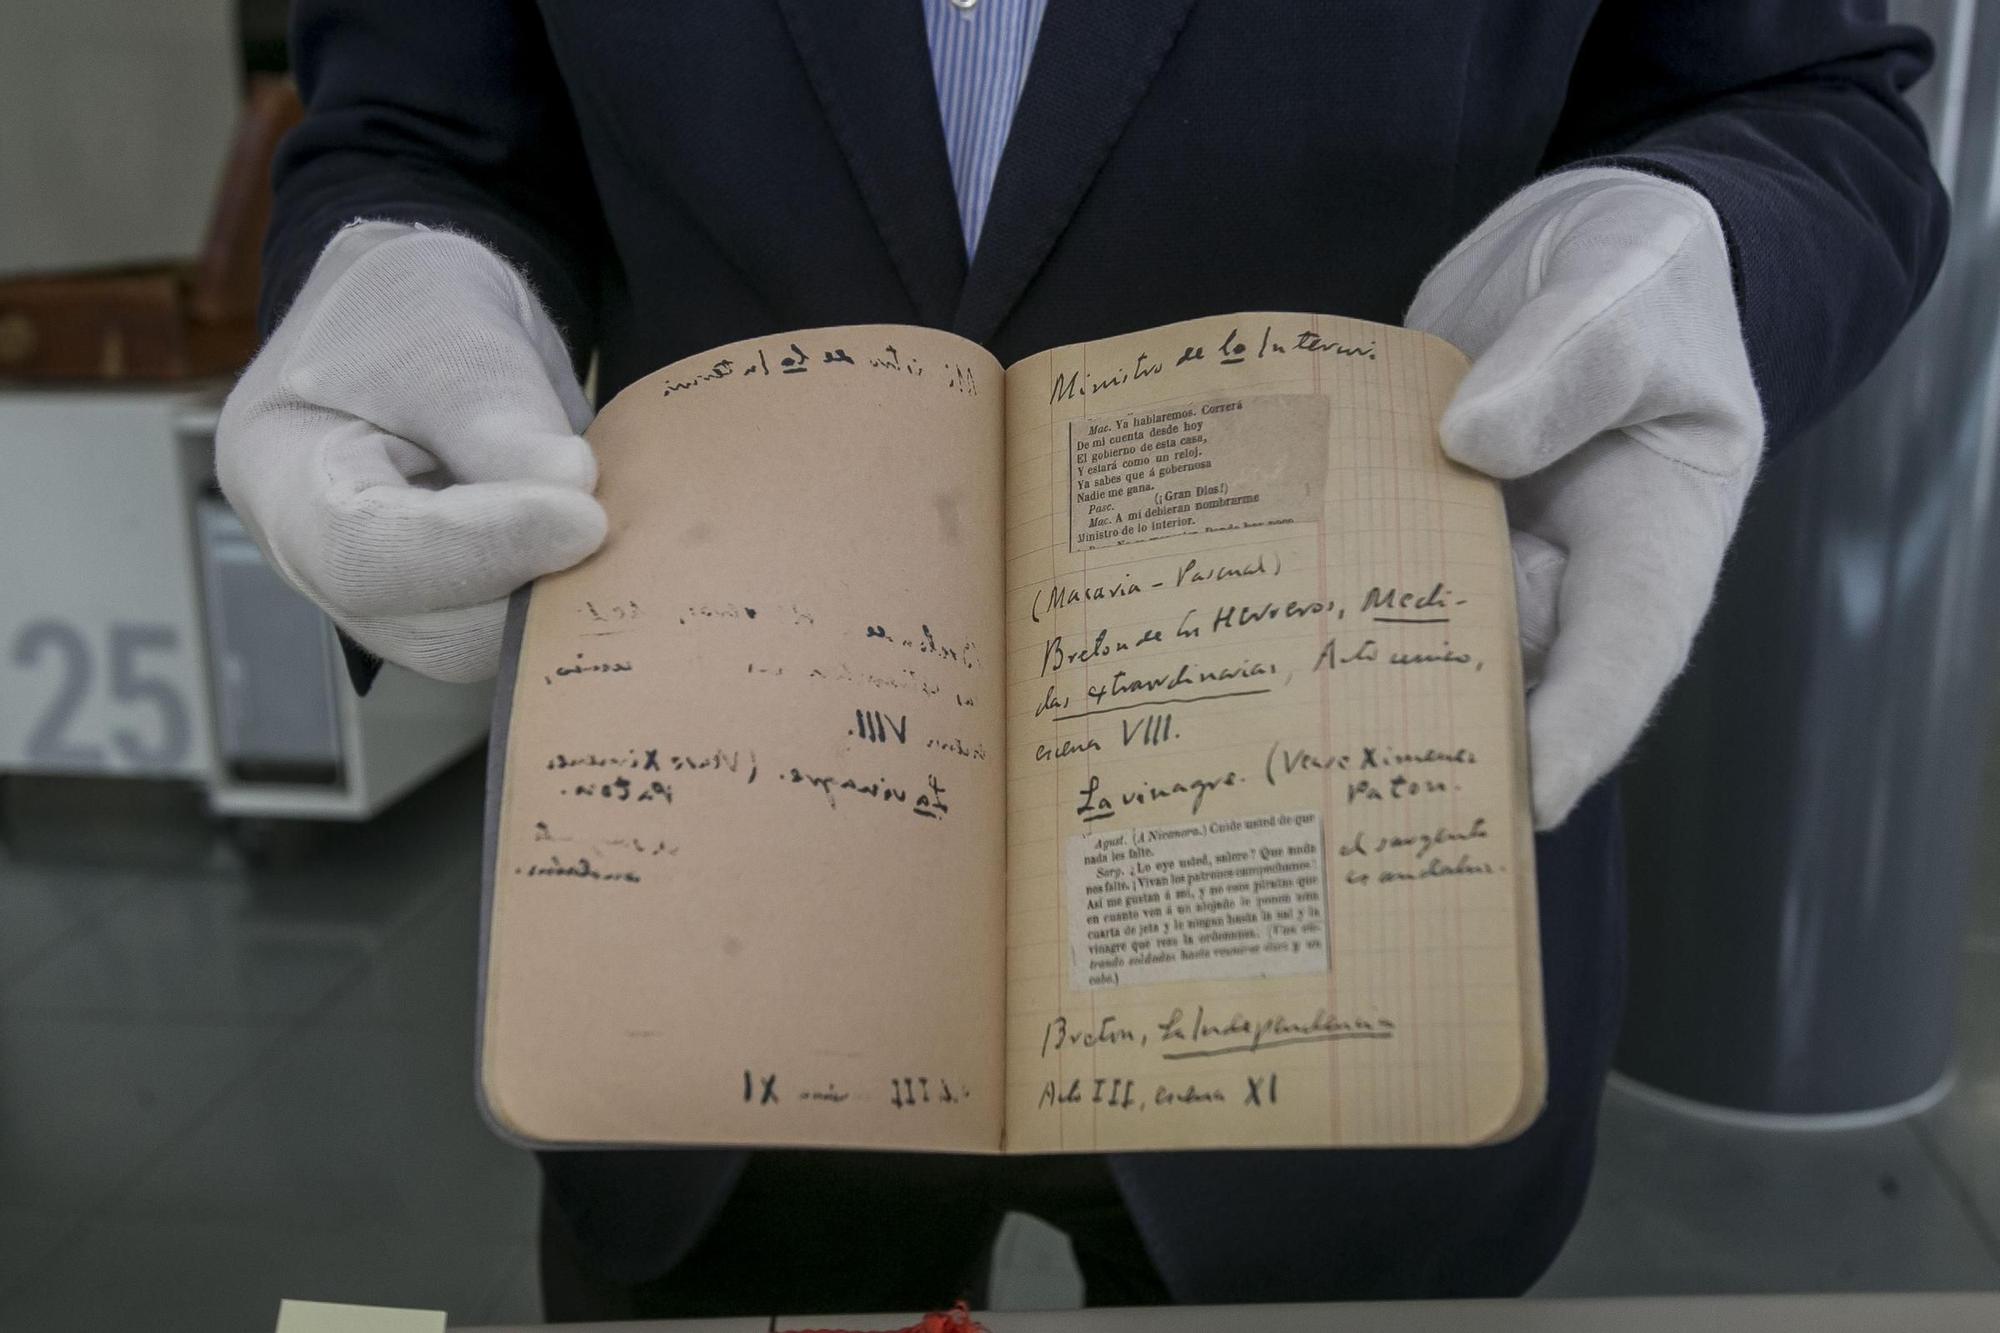 25
Ministro de lo Interior.
Mac. Ya hablaremos. Correrá
De mi cuenta desde hoy
El gobierno de esta casa,
Y estará como un reloj.
Ya sabes que á gobernosa
Nadie me gana.
Pasc. (¡Gran Dios!)
Mac. A mí debieran nombrarme
Ministro de lo interior.
(Macaria - Pascual)
Breton de los Herreros, Medi-
das extraordinarias, Acto unico,
escena VIII.
La vinagre. (Vease Ximenez
Paton.
Agust. (A Nicanora.) Cuide usted de que
nada les falte.
Sarg. ¿Lo oye usted, salero? Que nada
nos falte. ¡Vivan los patrones campechanos!
Así me gustan á mí, y no esos piratas que
en cuanto ven á un alojado le ponen una
cuarta de jeta y le niegan hasta la sal y la
vinagre que reza la ordenanza. (Van en-
trando soldados hasta reunirse cinco y un
cabo.)
el sargento
es andaluz.
Breton, La Independencia
Acto III, escena XI